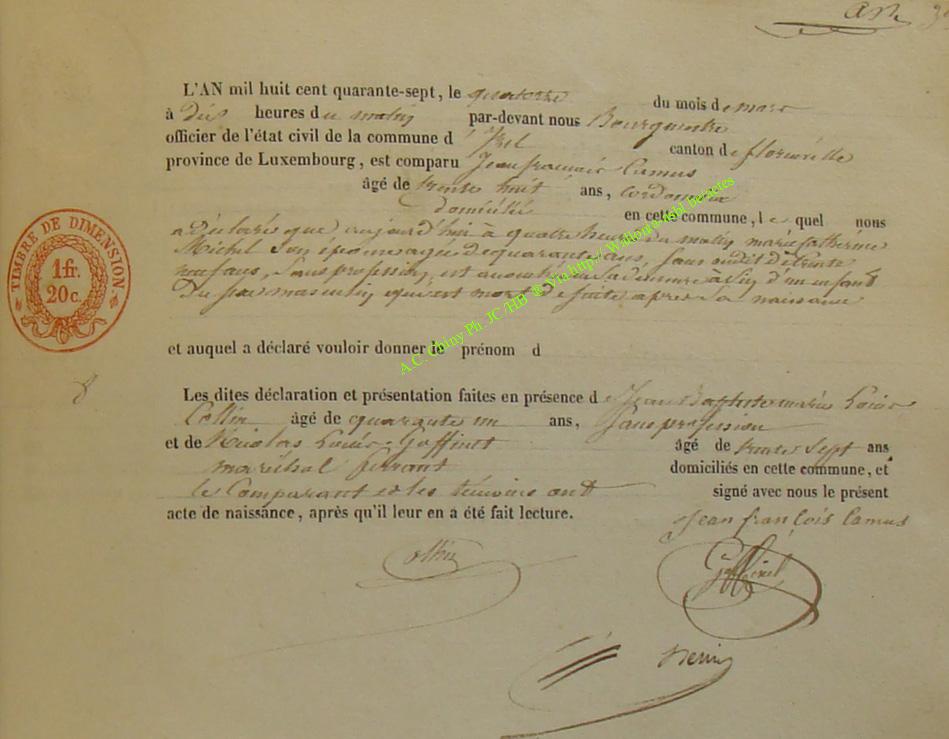 L'AN mil huit cent quarante-sept, le quatorze du mois de mars
à dix heures du matin par-devant nous Bourgmestre
officier de l'état civil de la commune d'Izel canton de florenville
province de Luxembourg, est comparu Jean françois Camus
âgé de trente huit ans, cordonnier
domicilié en cette commune, le quel nous
a déclaré que aujourd'hui à quatre heures du matin marie catherine
Michel son épouse agée de quarante ans, sans trente
neuf ans, sans profession, est accouchée en sa demeure à d'un enfant
du sexe masculin qui est mort de suite après sa naissance
et auquel a déclaré vouloir donner le prénom d
Les dites déclaration et présentation faites en présence de Jean Baptiste marie Louis
Collin âgé de quarante un ans, sans profession
et de Nicolas Louis Goffinet âgé de trente sept ans
maréchal ferrant domiciliés en cette commune, et
le Comparant et les témoins ont signé avec nous le présent
acte de naissance, après qu'il leur en a été fait lecture.
Jean françois Camus
Collin
Goffinet
TIMBRE DE DIMENSION
1 fr.
20 c.
A.C. Chiny Ph. JC /HB ® Via http:// Wallonia